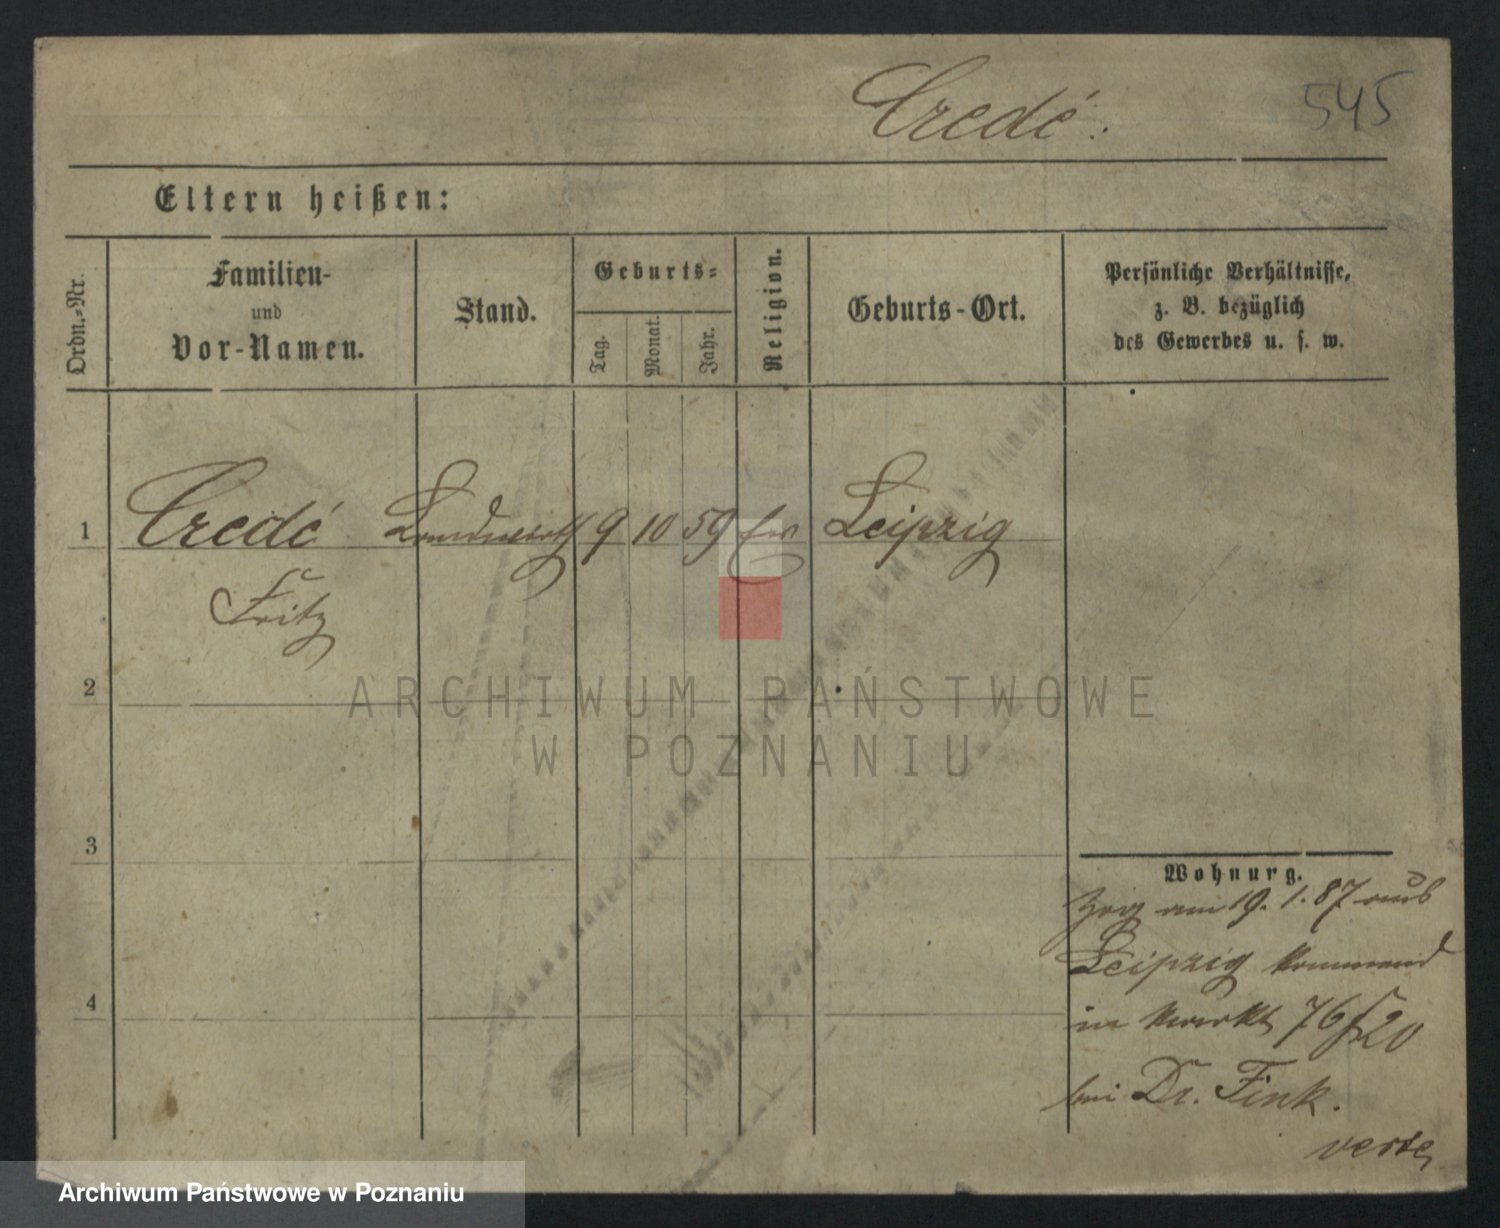 Credé.
545
Eltern heißen:
Ordn.-Nr.
Familien-
und
Vor-Namen.
Stand.
Geburts-
Tag.
Monat.
Jahr.
Religion.
Geburts-Ort.
Persönliche Verhältnisse,
z. B. bezüglich
des Gewerbes u. s. w.
1 Credé Landwirth 9 10 59 ev Leipzig
Fritz
2
3
4
ARCHIWUM PAŃSTWOWE
W POZNANIU
Wohnurg.
Zog am 19. 1. 87 aus
Leipzig kommend
in Markt 76/20
bei Dr. Fink.
verte
Archiwum Państwowe w Poznaniu